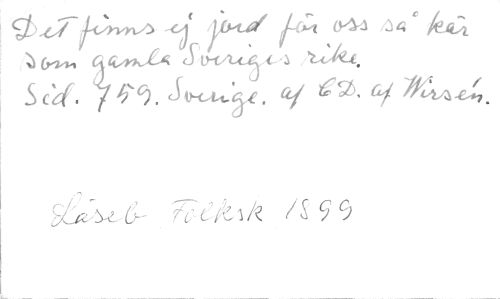 Det finns ej jord för oss så kär
som gamla Sveriges rike.
Sid. 759. Sverige. af C D. af Wirsén.
Läseb Folksk 1899